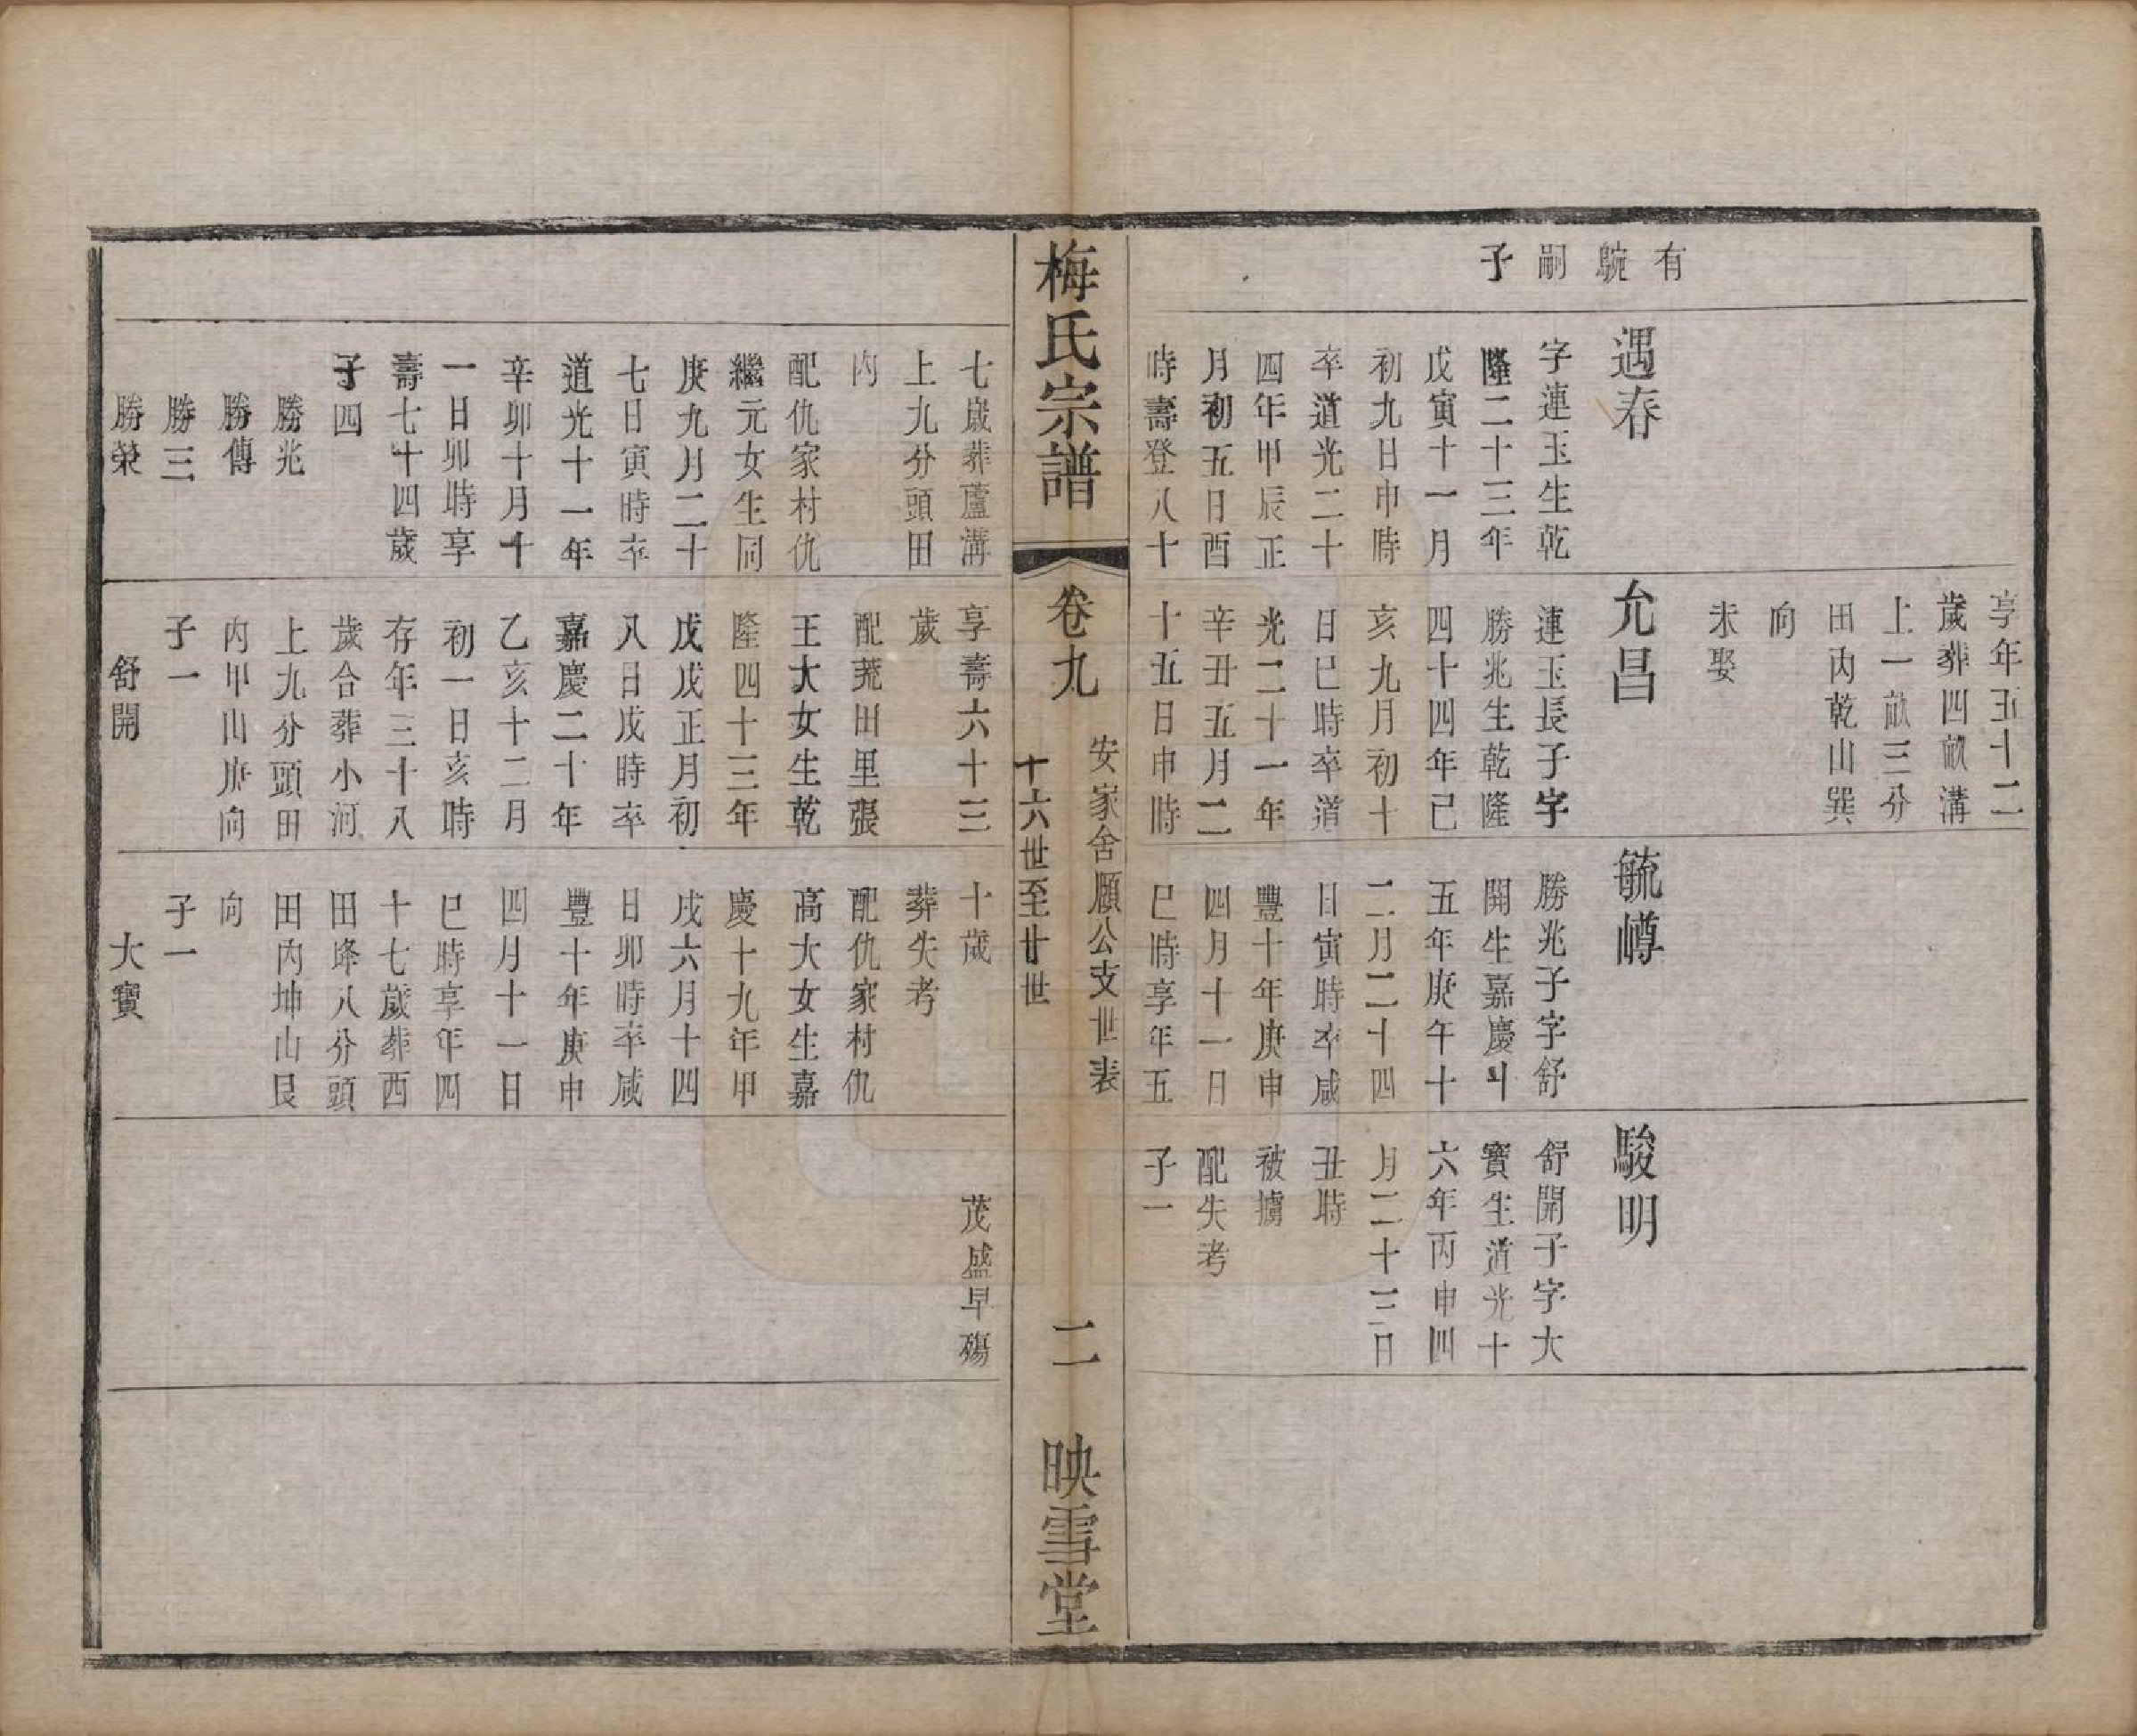 有 嗣子
遇春
字連玉生乾
隆二十三年
戊寅十一月
初九日申時
卒道光二十
四年甲辰正
月初五日酉
時壽登八十
享年五十二
歲葬四畝溝
上一畝三分
田內乾山巽
向
未娶
允昌
連玉長子字
勝兆生乾隆
四十四年己
亥九月初十
日巳時卒道
光二十一年
辛丑五月二
十五日申時
毓嶟
勝兆子字舒
開生嘉慶十
五年庚午十
二月二十四
日寅時卒咸
豐十年庚申
四月十一日
巳時享年五
駿明
舒開子字大
寶生道光十
六年丙申四
月二十三日
丑時
被擄
配失考
子一
梅氏宗譜
卷九
安家舍願公支世表
十六世至廿世
二
映雪堂
七歲葬蘆溝
上九分頭田
內
配仇家村仇
繼元女生同
庚九月二十
七日寅時卒
道光十一年
辛卯十月十
一日卯時享
壽七十四歲
子四
勝兆
勝傳
勝三
勝榮
享壽六十三
歲
配蒐田里張
王大女生乾
隆四十三年
戊戌正月初
八日戌時卒
嘉慶二十年
乙亥十二月
初一日亥時
存年三十八
歲合葬小河
上九分頭田
內甲山庚向
子一
舒開
十歲
葬失考
配仇家村仇
高大女生嘉
慶十九年甲
戌六月十四
日卯時卒咸
豐十年庚申
四月十一日
巳時享年四
十七歲葬西
田埄八分頭
田內坤山艮
向
子一
大寶
茂盛早殤